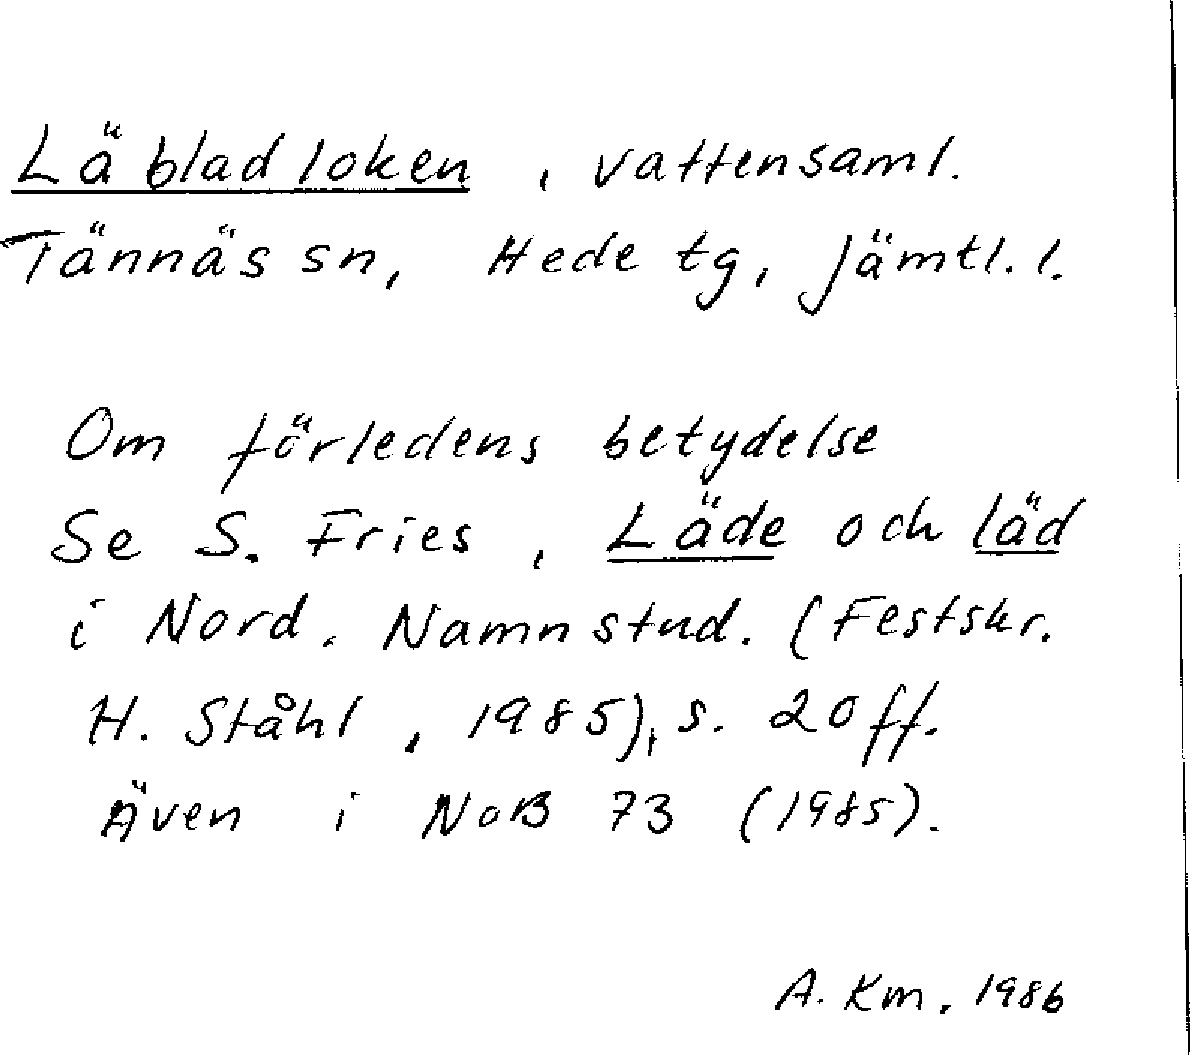 Läbladloken, vattensaml.
Tännäs sn, Hede tg, Jämtl. l.
Om förledens betydelse
Se S. Fries, Läde och läd
i Nord. Namnstud. (Festskr.
H. Ståhl, 1985), s. 20 ff.
Även i NoB 73 (1985).
A. Km. 1986